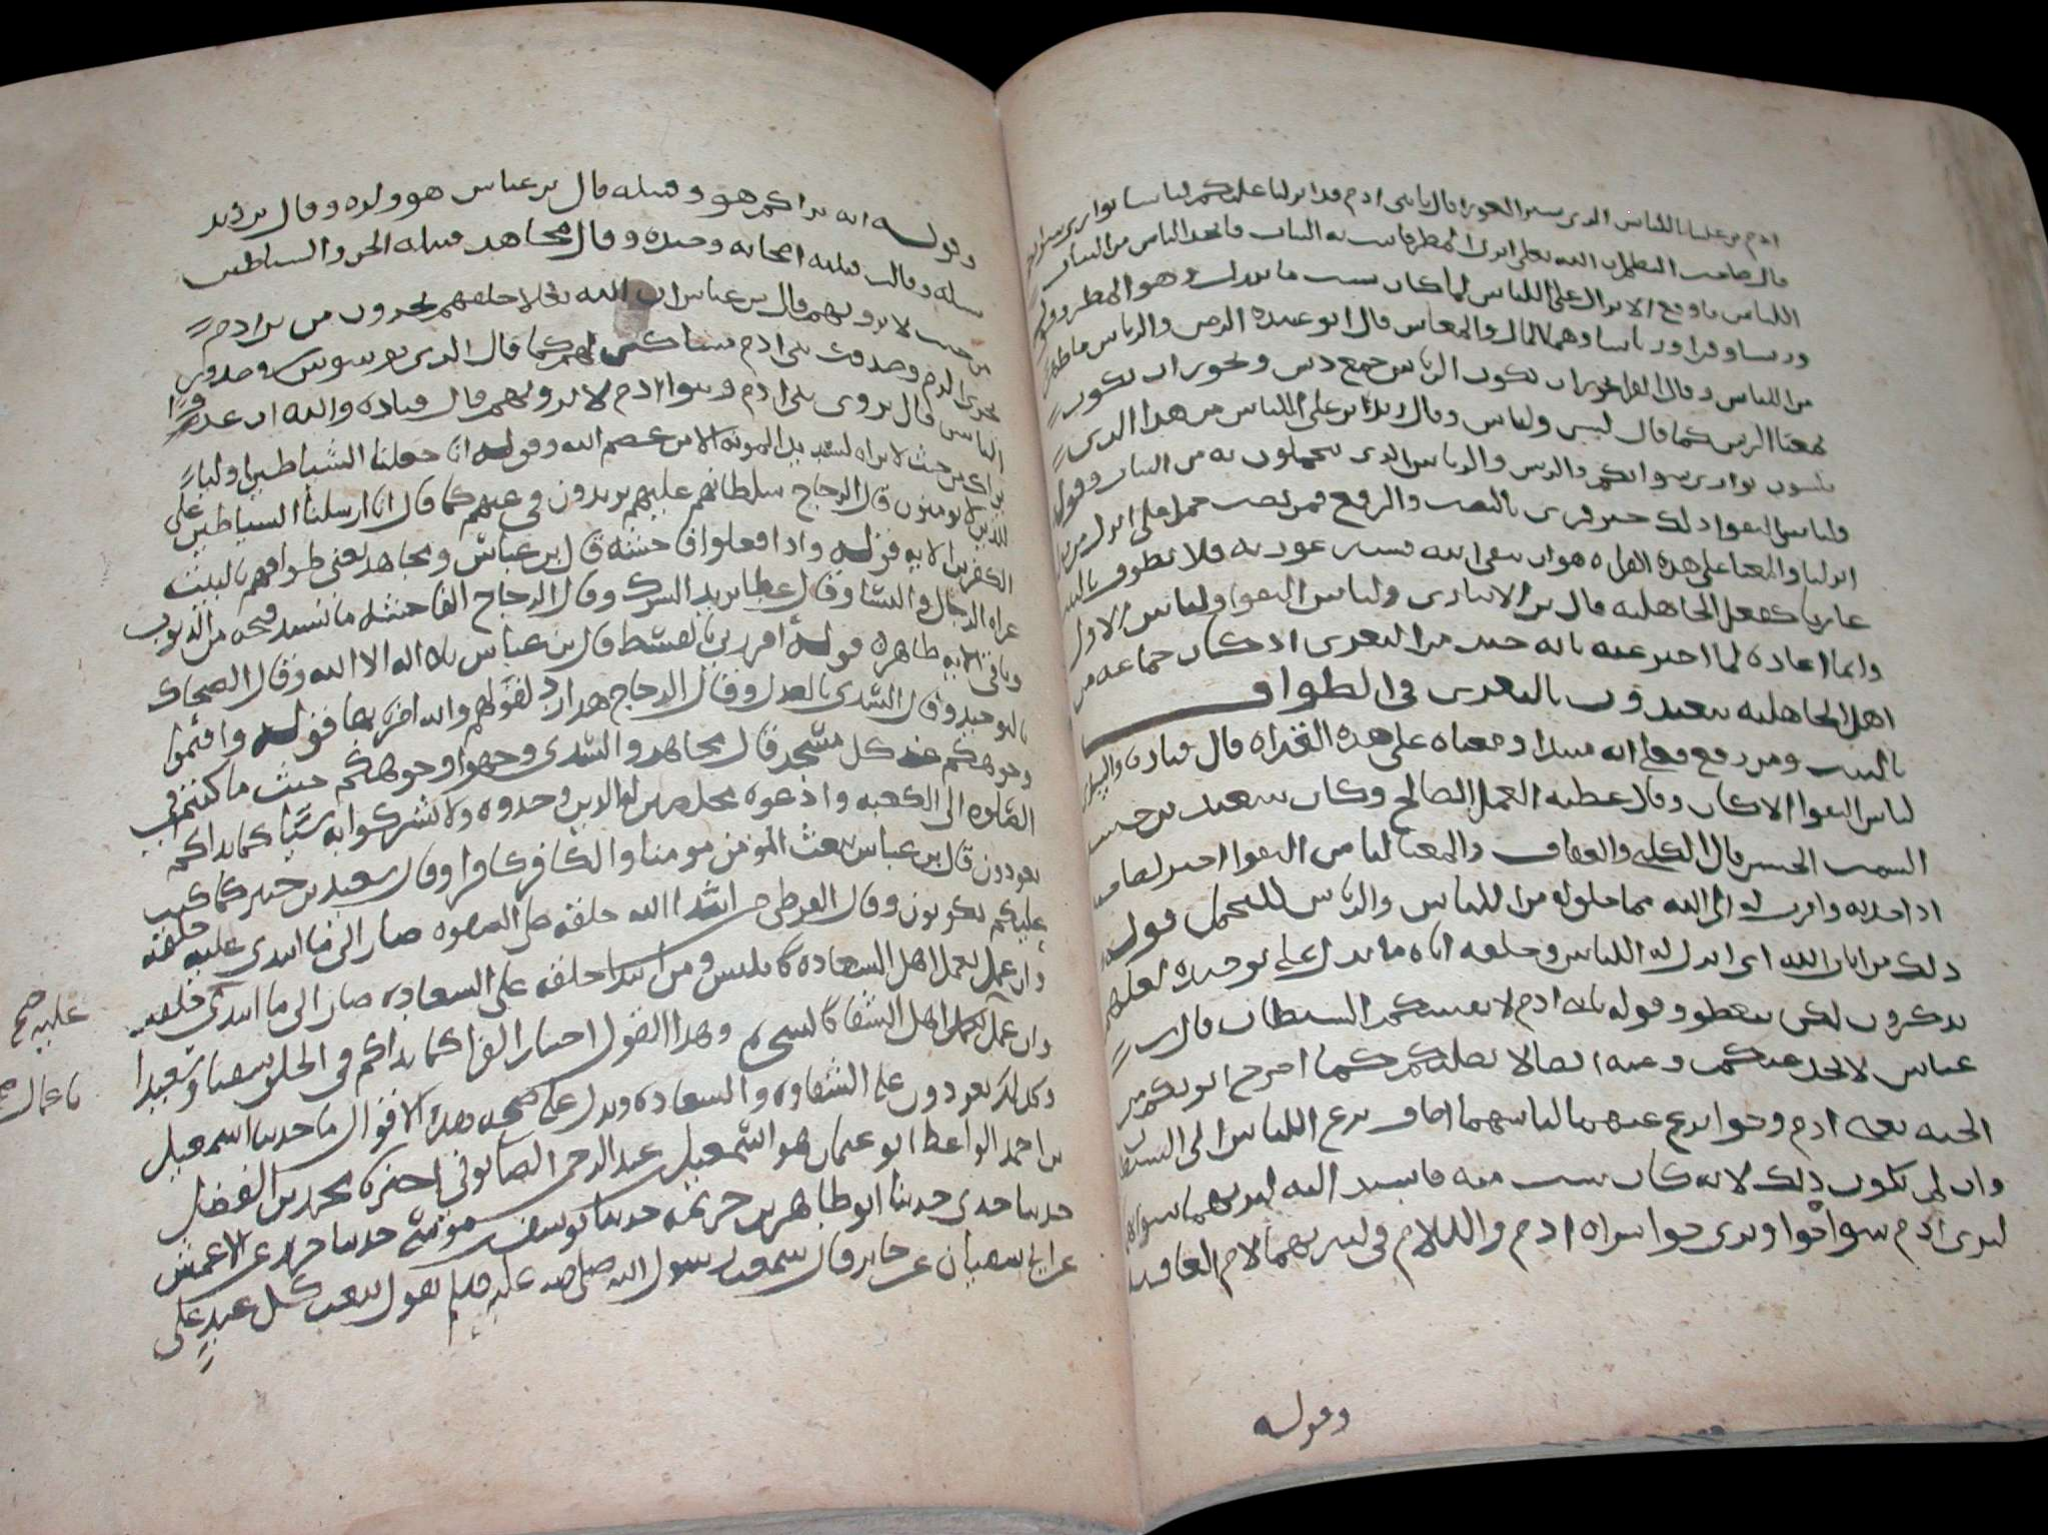 ادم من علينا اللباس الذي ستر العورة فقال يا بني ادم قد انزلنا عليكم لباسا يواري سواتكم
قال صاحب النظم ان الله تعلى انزل المطر فانبت به النبات فاتخذ الناس من النبات
اللباس فاوقع الانزال على اللباس لما كان سبب ما ينزل وهو المطر وقوله
وريشا وقرا ورياشا وهما المال والمعاش قال ابو عبيدة الريش والرياش ما ظهر
من اللباس وقال الفرا يجوز ان يكون الرياش جمع ريش ويجوز ان يكون
بمعنا الريش كما قال لبس ولباس وقال ابن علي اللباس من هذا الذي
تلبسون يواري سواتكم والريش والرياش الذي يتجملون به من الثياب وقوله
ولباس التقوا ذلك خير قرى بالنصب والرفع فمن نصب حمل على انزل من قوله
انزلنا والمعنا على هذه القراة هو ان يتقي الله فستر عورته فلا يطوف بالبيت
عاريا كفعل الجاهلية قال بن الانباري ولباس التقوا ولباس الاول
وانما اعاده لما اخبر عنه بانه خير من التعري اذ كان جماعه من
اهل الجاهلية يتعبدون بالتعري في الطواف
بالبيت ومن رفع فعلى انه مبتدا ومعناه على هذه القراة قال قتادة والسدي
لباس التقوا الايمان وقال عطية العمل الصالح وكان سعيد بن جبير
السمت الحسن قال الكلبي والعفاف والمعنا لباس التقوا خير لصاحبه
اذا اخذ به واقرب له الى الله مما خلق له من اللباس والرياش للتجمل قوله
ذلك من ايات الله اي انزل له اللباس وخلقه اياه ما يدل على توحيده لعلهم
يذكرون لكي يتعظو وقوله يا بني ادم لا يفتننكم الشيطان قال بن
عباس لا يخدعنكم وعنه ايضا لا يضلنكم كما اخرج ابويكم من
الجنة يعني ادم وحوا ينزع عنهما لباسهما اضاف نزع اللباس الى الشيطان
وان لم يكون ذلك لانه كان بسبب منه فاسند اليه ليريهما سواتهما
ليرى ادم سواة حوا ويرى حوا سواة ادم واللام في ليريهما لام العاقبة
وقوله
وقوله انه يراكم هو وقبيله قال بن عباس هو وولده وقال بن زيد
نسله وقال قبيله اصحابه وجنده وقال مجاهد قبيله الجن والشياطين
من حيث لا ترونهم قال بن عباس ان الله تعلى جعلهم يجرون من بن ادم
مجرى الدم وصدور بني ادم مساكن لهم كما قال الذي يوسوس في صدور
الناس قال يروى بني ادم وبنوا ادم لا يرونهم قال قتادة والله ان عدوا
يراك من حيث لا تراه لشديد المونة الا من عصم الله وقوله انا جعلنا الشياطين اوليا
للذين لا يومنون قال الزجاج سلطانهم عليهم يزيدون في غيهم كما قال انا ارسلنا الشياطين على
الكفرين الاية قوله واذا فعلوا فاحشة قال بن عباس ومجاهد يعني طوافهم بالبيت
عراه الرجال والنسا وقال عطا يريد الشرك وقال الزجاج الفاحشة ما تشتد قبحه من الذنوب
وباقي الاية ظاهرة قوله امر ربي بالقسط قال بن عباس بلا اله الا الله وقال الضحاك
بالتوحيد وقال السدي بالعدل وقال الزجاج هذا رد لقولهم والله امرنا بها قوله واقيموا
وجوهكم عند كل مسجد قال مجاهد والسدي وجهوا وجوهكم حيث ما كنتم في
الصلوة الى الكعبة وادعوه مخلصين له الدين وحدوه ولا تشركوا به شيا كما بداكم
تعودون قال بن عباس يبعث المومن مومنا والكافر كافرا وقال سعيد بن جبير كما كتب
عليكم تكونون وقال القرظي من ابتدا الله خلقه على الشقوة صار الى ما ابتدي عليه خلقه
وان عمل بعمل اهل السعادة كابليس ومن ابتدا خلقه على السعادة صار الى ما ابتدي خلقه
عليه صح
وان عمل بعمل اهل الشقا كالسحرة وهذا القول اختيار الفرا كما بداكم في الخلق شقيا وسعيدا
باعمال صح
وكذلك تعودون على الشقاوه والسعادة ويدل على صحة هذه الاقوال ما حدثنا اسمعيل
بن احمد الواعظ ابو عثمان هو اسمعيل عبد الرحمن الصابوني اخبرنا محمد بن الفضل
حدثنا جدي حدثنا ابو طاهر بن خزيمه حدثنا يوسف بن موسى حدثنا جرير عن الاعمش
عن ابي سفيان عن جابر قال سمعت رسول الله صلى الله عليه وسلم يقول يبعث كل عبد على